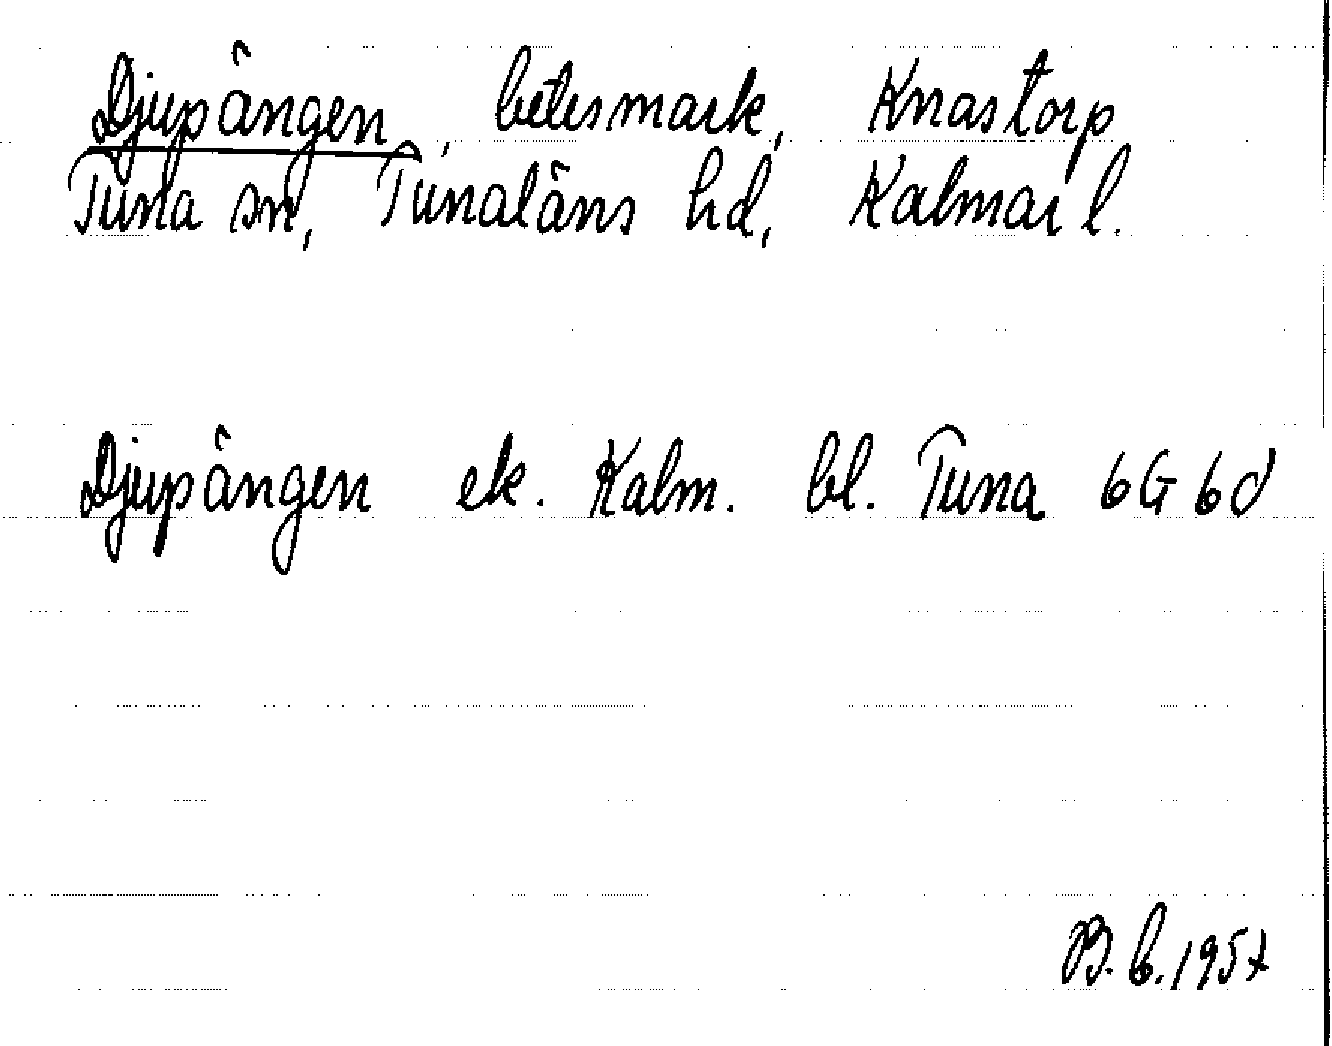 Djupängen, betesmark, Knastorp
Tuna sn, Tunaläns hd, Kalmar l.
Djupängen ek. Kalm. bl. Tuna 6G 6d
B.b. 1957